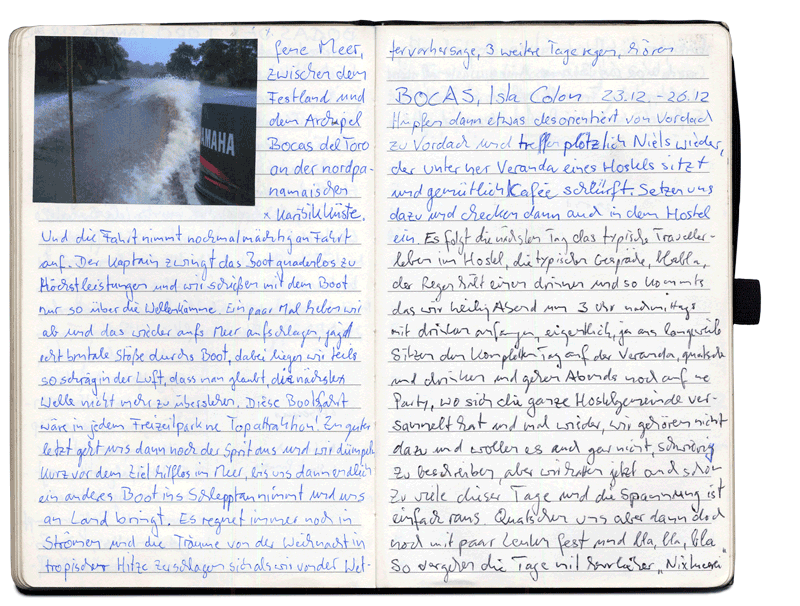 YAMAHA
fene Meer,
zwischen dem
Festland und
dem Archipel
Bocas del Toro
an der nordpa-
namaischen
x Karibikküste.
Und die Fahrt nimmt nochmal mächtig an Fahrt
auf. Der Kaptain zwingt das Boot gnadenlos zu
Höchstleistungen und wir schießen mit dem Boot
nur so über die Wellenkämme. Ein paar Mal heben wir
ab und das wieder aufs Meer aufschlagen, jagd
echt brutale Stöße durchs Boot, dabei liegen wir teils
so schräg in der Luft, dass man glaubt, die nächste
Welle nicht mehr zu überstehen. Diese Bootsfahrt
wäre in jedem Freizeitpark ne Topattraktion! Zu guter
letzt geht uns dann noch der Sprit aus und wir dümpeln
kurz vor dem Ziel hilflos im Meer, bis uns dann endlich
ein anderes Boot ins Schlepptau nimmt und uns
an Land bringt. Es regnet immer noch in
Strömen und die Träume von der Weihnacht in
tropischer Hitze zerschlagen sich als wir von der Wet-
tervorhersage, 3 weitere Tage regen, hören
BOCAS, Isla Colon 23.12. - 26.12
Hüpfen dann etwas desorientiert von Vordach
zu Vordach und treffen plötzlich Niels wieder,
der unter ner Veranda eines Hostels sitzt
und gemütlich Kafee schlürft. Setzen uns
dazu und checken dann auch in dem Hostel
ein. Es folgt die nächsten Tag das typische Traveller-
leben im Hostel, die typischen Gespräche, blabla,
der Regen hält einen drinnen und so kommts
das wir heilig Abend um 3 Uhr nachmittags
mit drinken anfangen, eigentlich, ja aus langeweile
Sitzen den kompletten Tag auf der Veranda, quatschen
und drinken und gehen Abends noch auf ne
Party, wo sich die ganze Hostelgemeinde ver-
sammelt hat und mal wieder, wir gehören nicht
dazu und wollen es auch gar nicht, schwierig
zu beschreiben, aber wir hatten jetzt auch schon
zu viele dieser Tage und die Spannung ist
einfach raus. Quatschen uns aber dann doch
noch mit paar Leuten fest und bla, bla, bla.
So vergehen die Tage mit